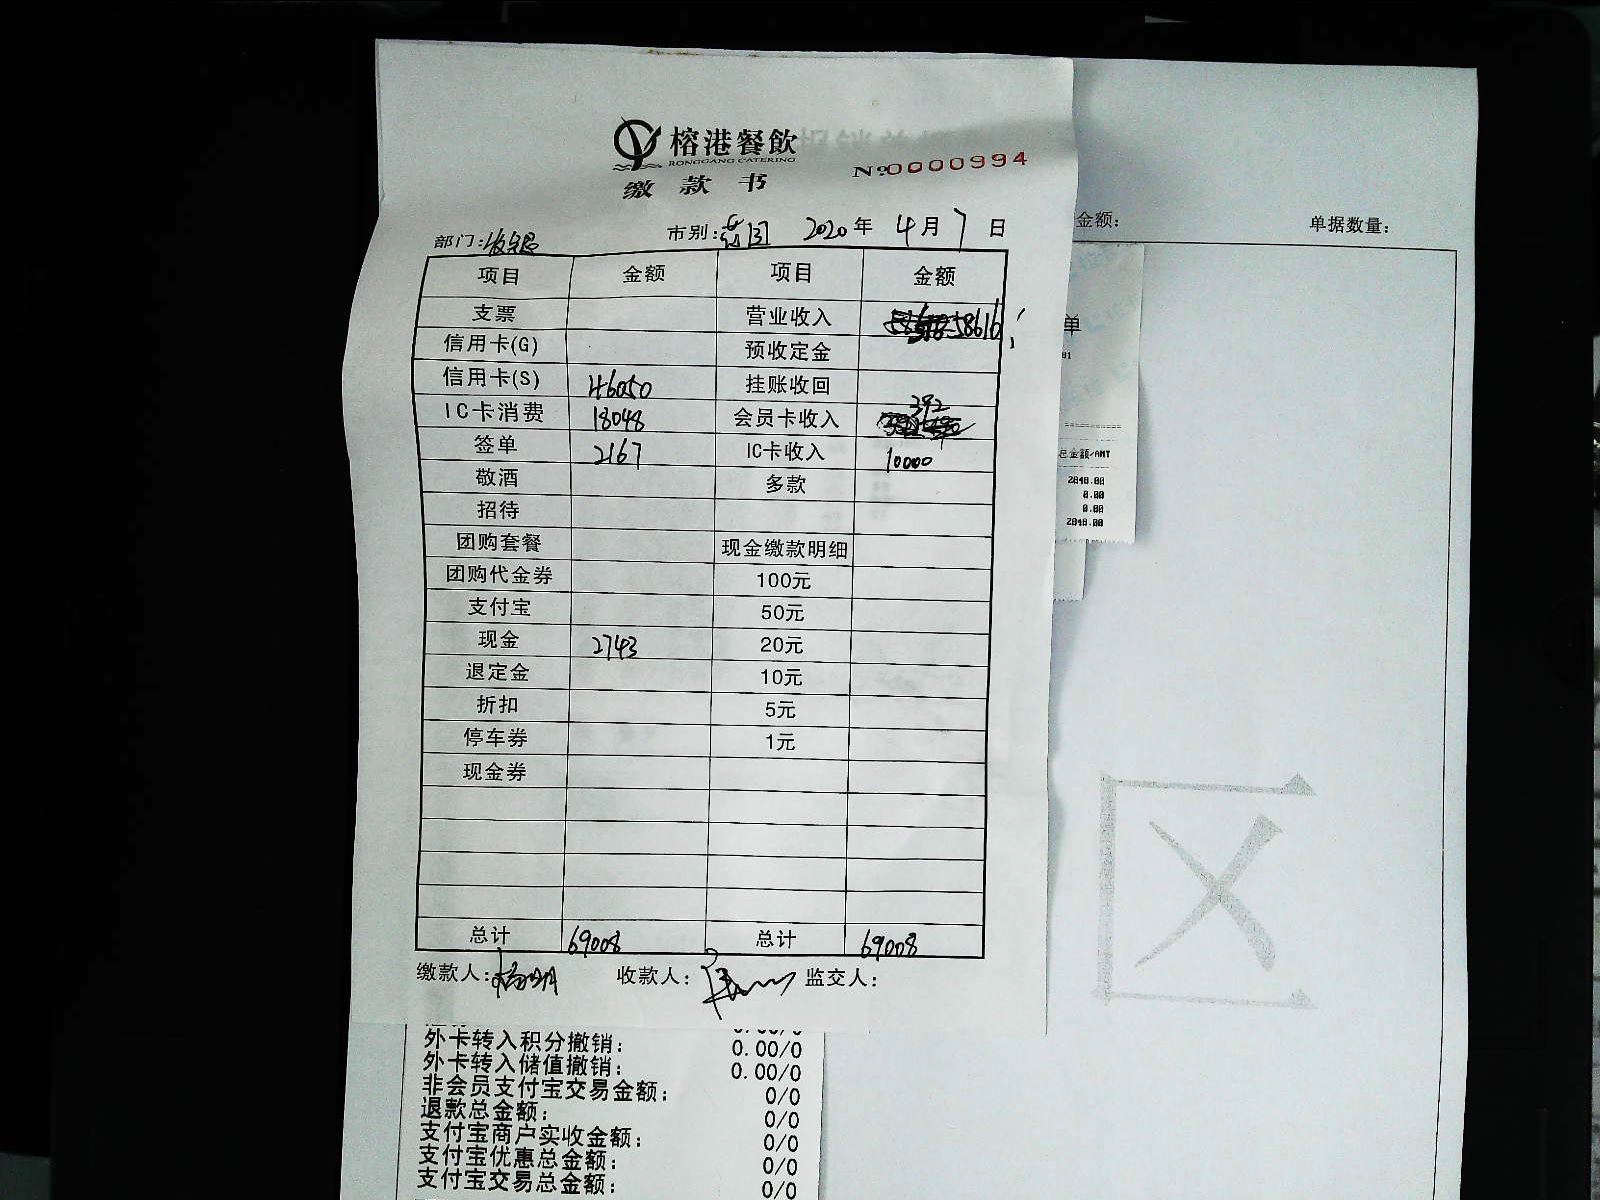 榕港餐飲
RONGGANG CATERING
缴款书
№0000994
部门:收银 市别: 2020年4月7日
项目 金额 项目 金额
支票 营业收入 58616
信用卡(G) 预收定金
信用卡(S) 46050 挂账收回
IC卡消费 18048 会员卡收入 392
签单 2167 IC卡收入 10000
敬酒 多款
招待
团购套餐 现金缴款明细
团购代金券 100元
支付宝 50元
现金 2743 20元
退定金 10元
折扣 5元
停车券 1元
现金券
总计 69008 总计 69008
缴款人:杨明 收款人: 监交人:
金额: 单据数量:
单
总金额/AMT
2848.00
0.00
0.00
2848.00
区
外卡转入积分撤销: 0.00/0
外卡转入储值撤销: 0.00/0
非会员支付宝交易金额: 0/0
退款总金额: 0/0
支付宝商户实收金额: 0/0
支付宝优惠总金额: 0/0
支付宝交易总金额: 0/0